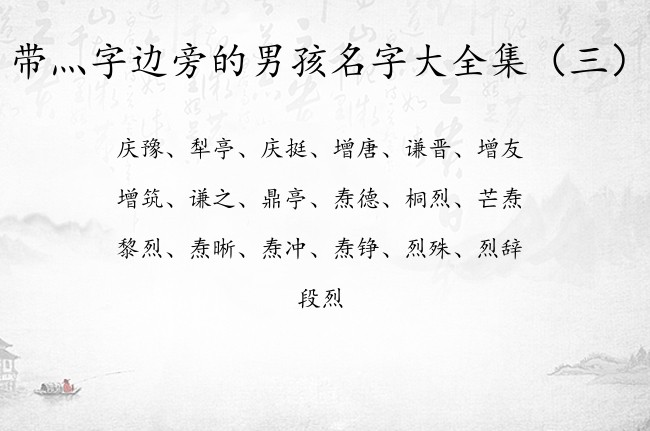 带灬字边旁的男孩名字大全集（三）
庆豫、犁亭、庆挺、增唐、谦晋、增友
增筑、谦之、鼎亭、焘德、桐烈、芒焘
黎烈、焘晰、焘冲、焘铮、烈殊、烈辞
段烈